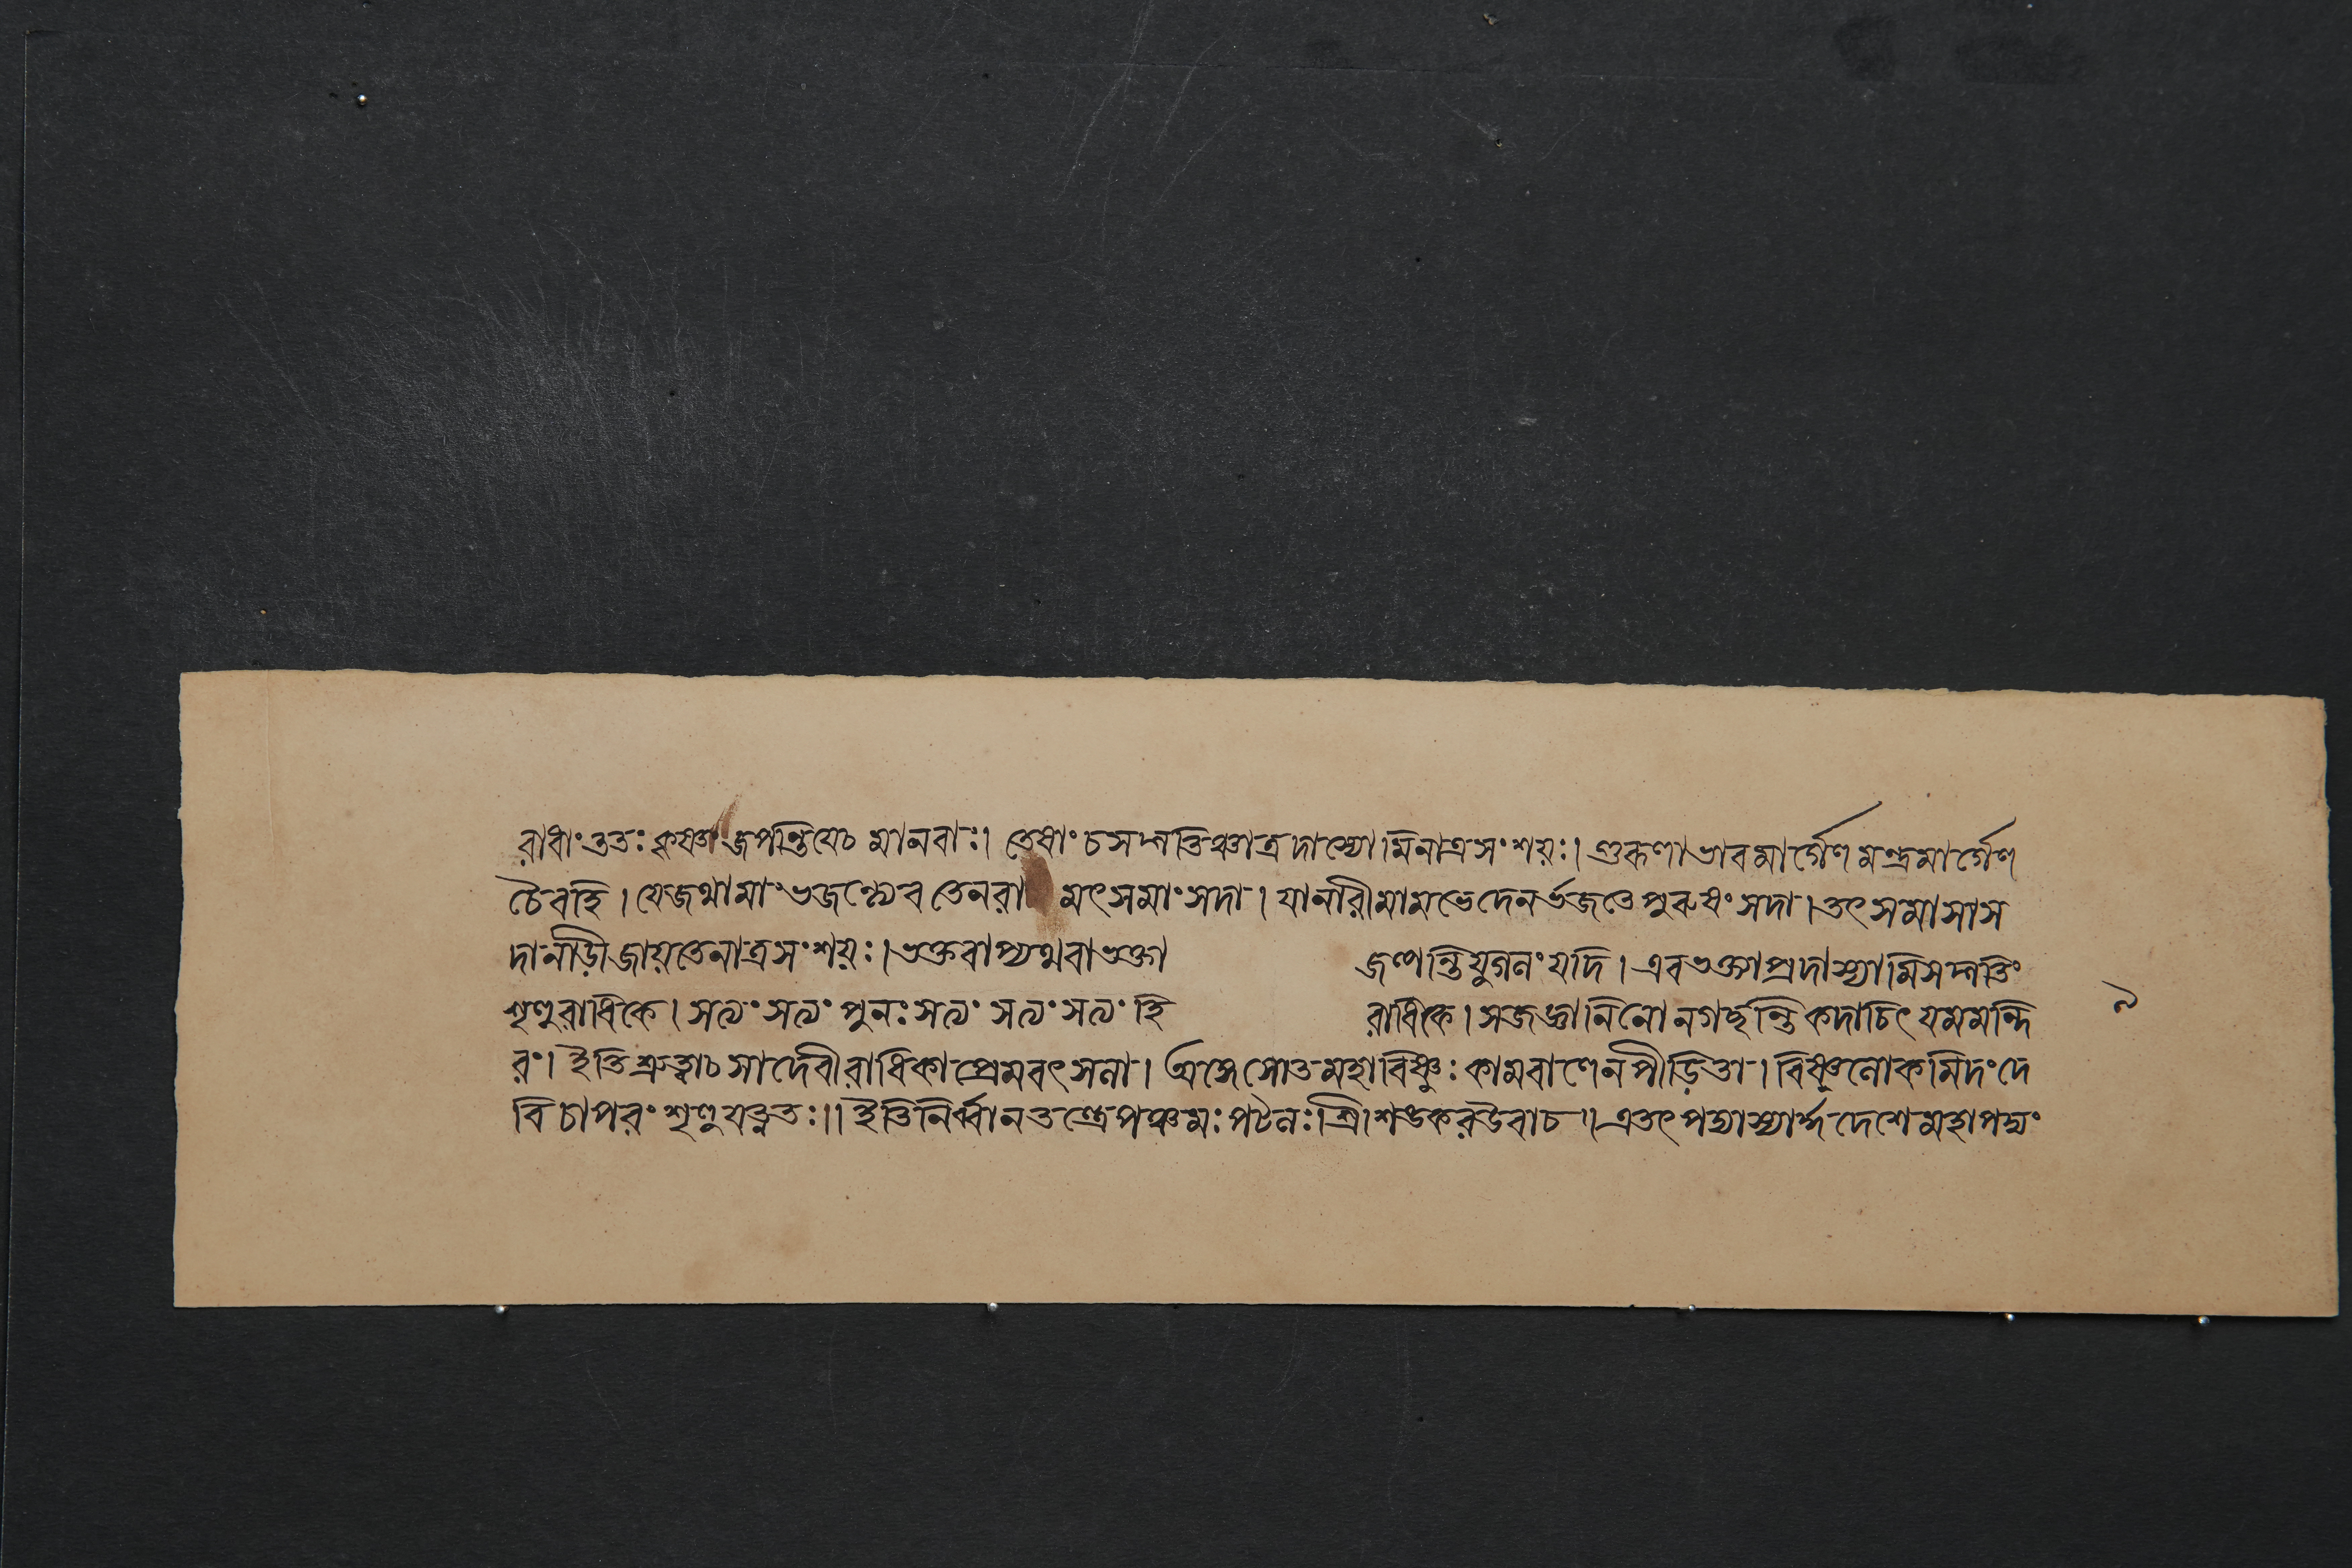 রাধাং ততঃ কৃষ্ণং জপন্তি যেচ মানবাঃ। তেষাং চ সদ্গতিঞ্চাত্র দাস্যোমি নাত্র সংশয়ঃ। গুরুণা ভাবমার্গেণ মন্ত্রমার্গেণ
চৈবহি। যে জথা মাং ভজন্ত্যেব তেন রা মৎসমাং সদা। যা নারী মামভেদেন র্ভজতে পুরুষং সদা। তৎসমাসাস
দা নাড়ী জায়তে নাত্র সংশয়ঃ। ভক্ত বাপ্যথবা ভক্তা জপন্তি যুগলং যদি। এব ভক্তা প্রদাস্যামি সদ্গতিং
শৃণু রাধিকে। সত্যং সত্যং পুনঃ সত্যং সত্যং সত্যং হি রাধিকে। সজজ্ঞানিনো ন গচ্ছন্তি কদাচিৎ যমমন্দি
রং। ইতি শ্রুত্বাচ সা দেবী রাধিকা প্রেমবৎসলা। অঙ্গে সোত মহাবিষ্ণুঃ কামবাণেন পীড়িতা। বিষ্ণুলোকমিদং দে
বি চাপরং শৃণু যত্নতঃ॥ ইতি নির্ব্বানতন্ত্রে পঞ্চমঃ পটলঃ। শ্রীশঙকর উবাচ॥ এতৎ পদ্মাস্যার্দ্ধদেশে মহাপদ্মং
৯